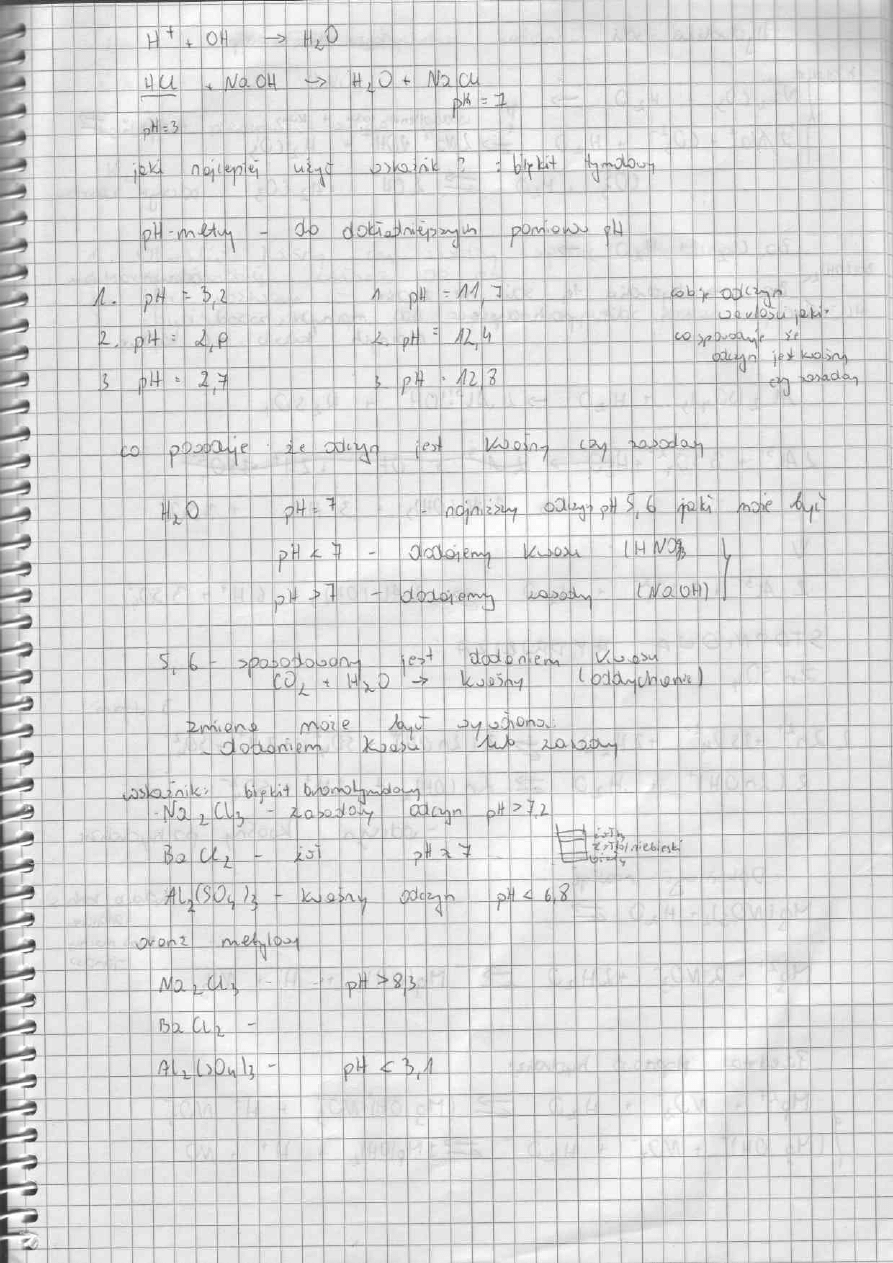 H⁺ + OH → H₂O
HCl + NaOH → H₂O + NaCl
pH = 7
pH = 3
jaki najlepiej użyć wskaźnik? : błękit tymolowy
pH-metry - do dokładniejszych pomiarów pH
1. pH = 3,2 1. pH = 11,7
odczyn
2. pH = 2,9 2. pH = 12,4
co powoduje że
odczyn jest kwaśny
3 pH = 2,7 3. pH = 12,8
czy zasadowy
co powoduje że odczyn jest kwaśny czy zasadowy
H₂O pH = 7 - najniższy odczyn pH 5,6 jaki może być
pH < 7 - dodajemy kwasu (HNO₃)
pH > 7 - dodajemy zasady (NaOH)
5,6 - spowodowany jest dodaniem kwasu
CO₂ + H₂O → kwaśny (oddychanie)
zmiana może być wywołana
dodaniem kwasu lub zasady
wskaźnik: błękit bromotymolowy
Na₂Cl₃ - zasadowy odczyn pH > 7,2
BaCl₂ - żół pH ≈ 7
Al₂(SO₄)₃ - kwaśny odczyn pH < 6,8
oranż metylowy
Na₂Cl₃ pH > 8,3
BaCl₂ -
Al₂(SO₄)₃ - pH < 3,1